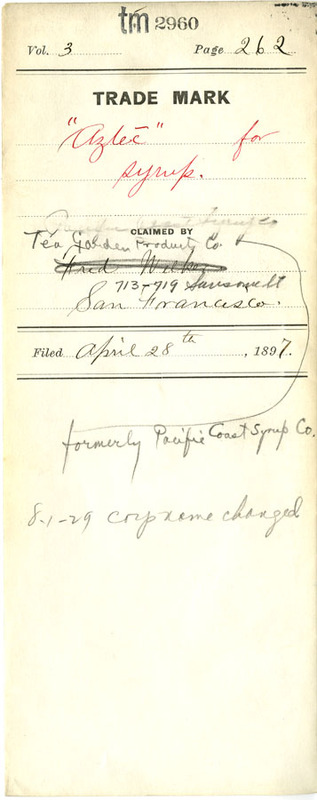 tm 2960
Vol. 3 Page 262
TRADE MARK
"Aztec" for
syrup.
Pacific Coast Syrup Co
CLAIMED BY
Tea Garden Products Co.
Fred
713-719 Sansome St
San Francisco.
Filed April 28th, 1897.
formerly Pacific Coast Syrup Co.
8-1-29 corp name changed